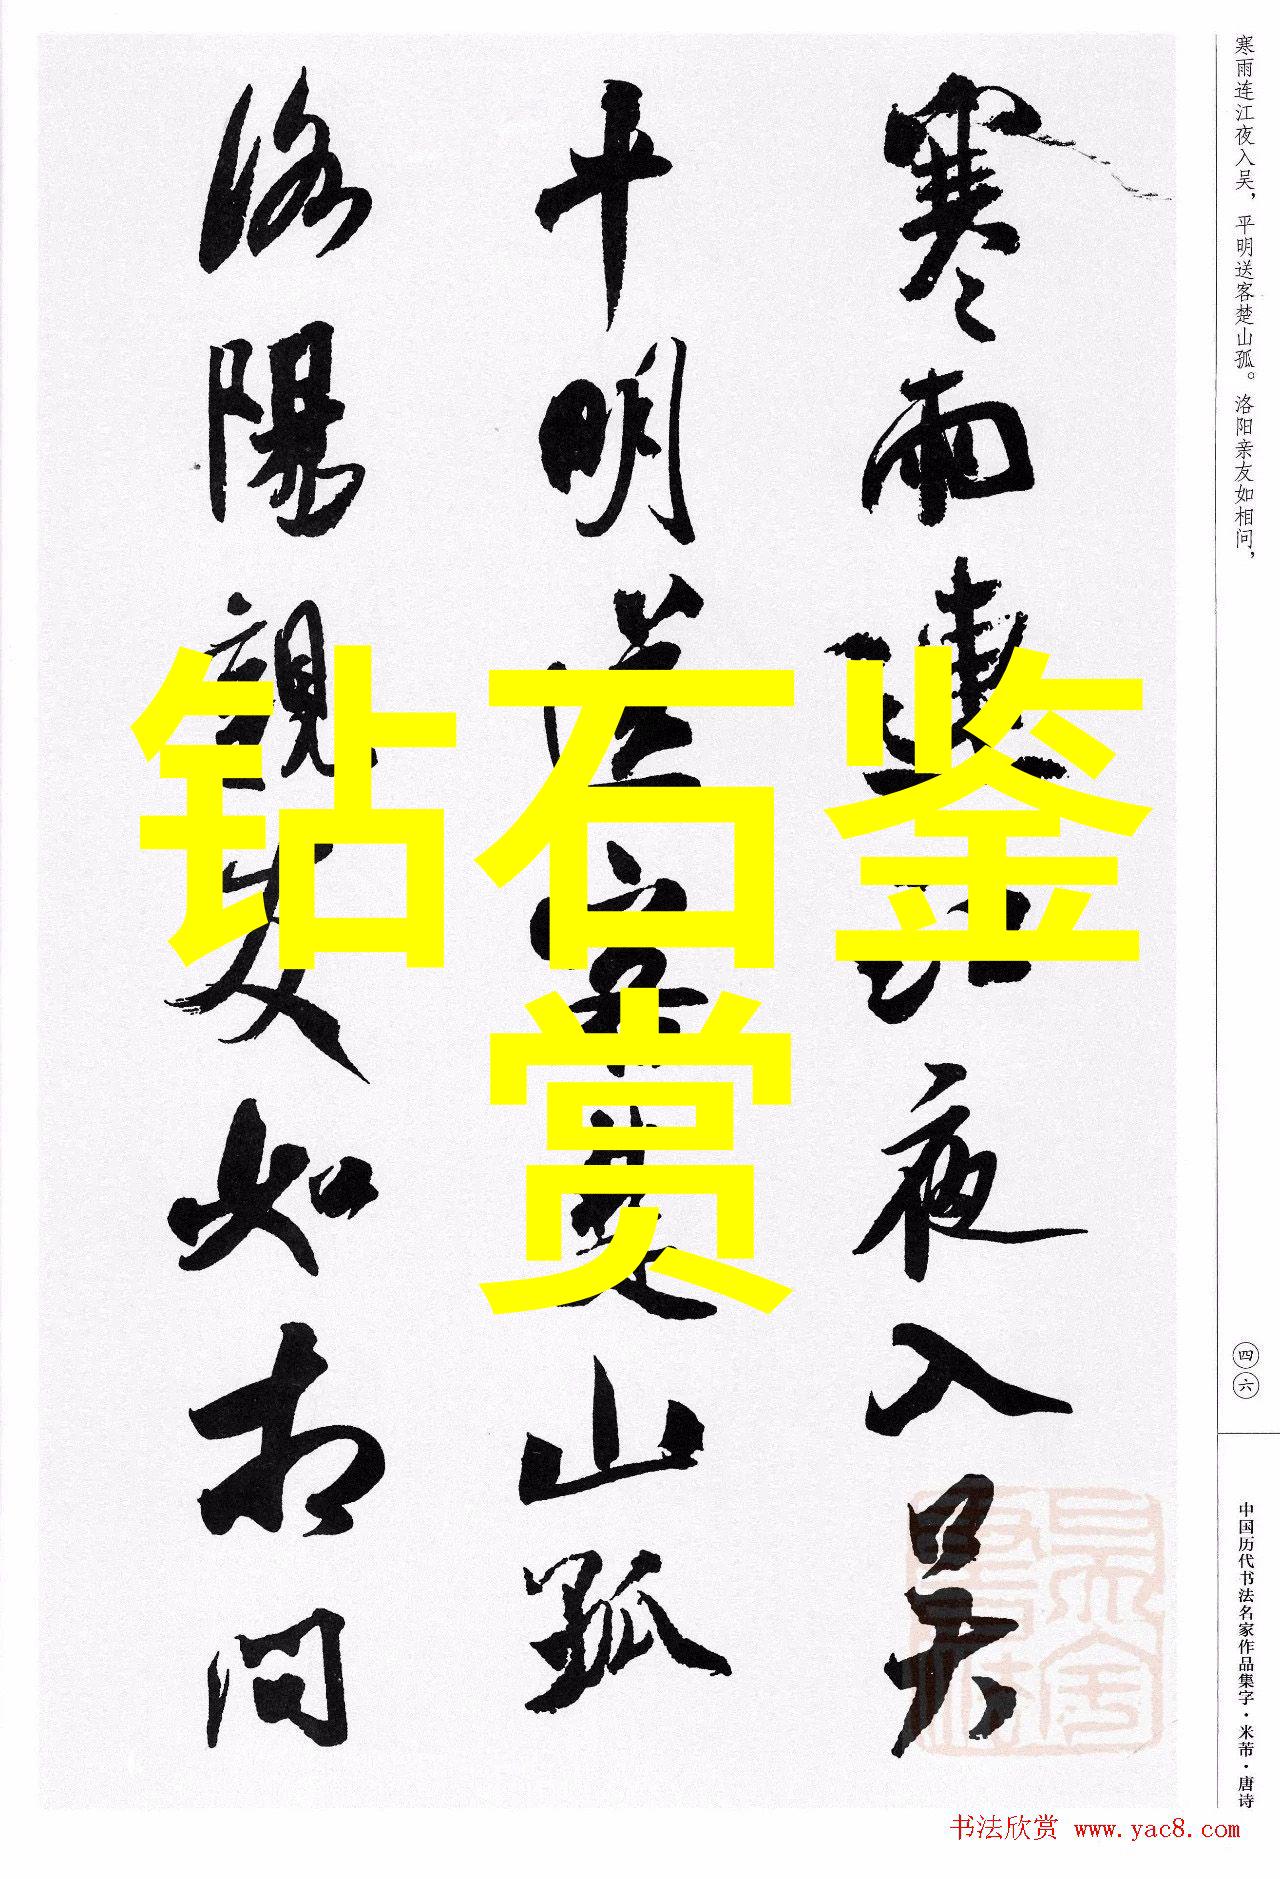 寒雨连江夜入吴，平明送客楚山孤。洛阳亲友如相问，
四六
中国历代书法名家作品集字·米芾·唐诗
寒雨連江夜入吳
平明送客楚山孤
洛陽親友如相問
钻石鉴
赏
书法欣赏 www.yac8.com